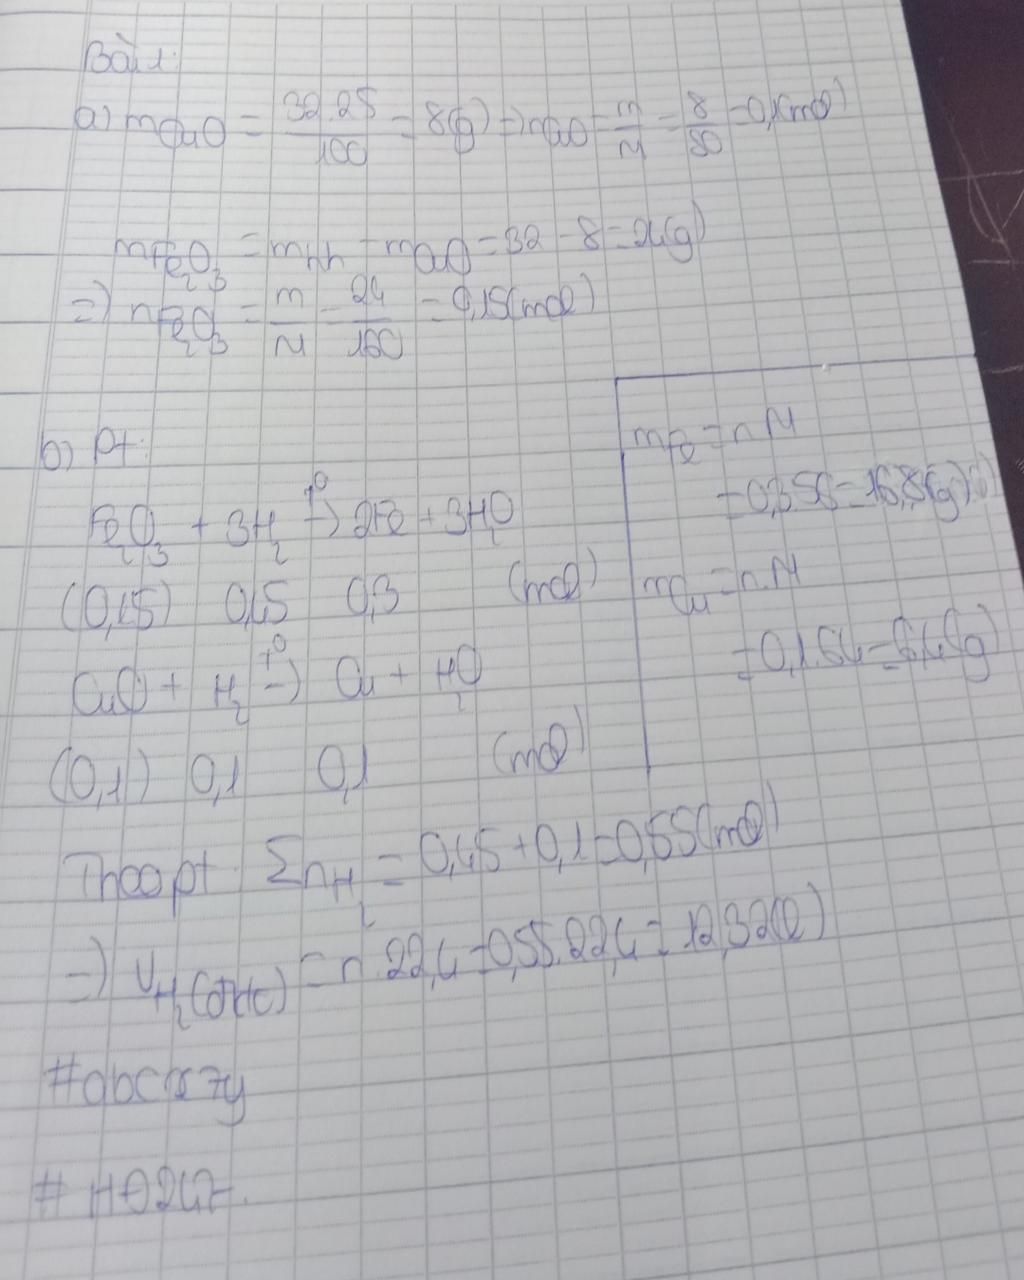 Bài 1:
a) mCuO = 32.25/100 = 8(g) => nCuO = m/M = 8/80 = 0,1(mol)
mFe2O3 = mhh - mCuO = 32 - 8 = 24(g)
=> nFe2O3 = m/M = 24/160 = 0,15(mol)
b) Pt:
Fe2O3 + 3H2 t°-> 2Fe + 3H2O
(0,15) 0,45 0,3 (mol)
CuO + H2 t°-> Cu + H2O
(0,1) 0,1 0,1 (mol)
mFe = n.M
= 0,3.56 = 16,8(g)
mCu = n.M
= 0,1.64 = 6,4(g)
Theo pt: ΣnH2 = 0,45 + 0,1 = 0,55(mol)
=> VH2(đktc) = n.22,4 = 0,55.22,4 = 12,32(l)